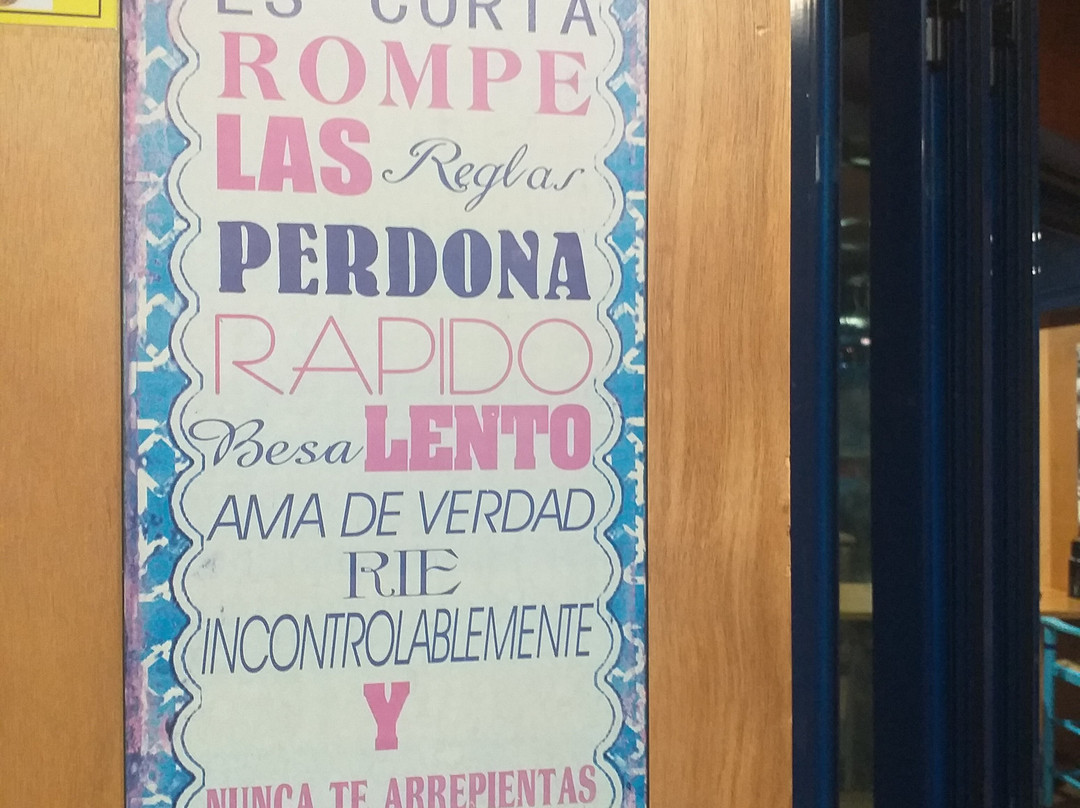 ES CORTA
ROMPE
LAS Reglas
PERDONA
RAPIDO
Besa LENTO
AMA DE VERDAD
RIE
INCONTROLABLEMENTE
Y
NUNCA TE ARREPIENTAS